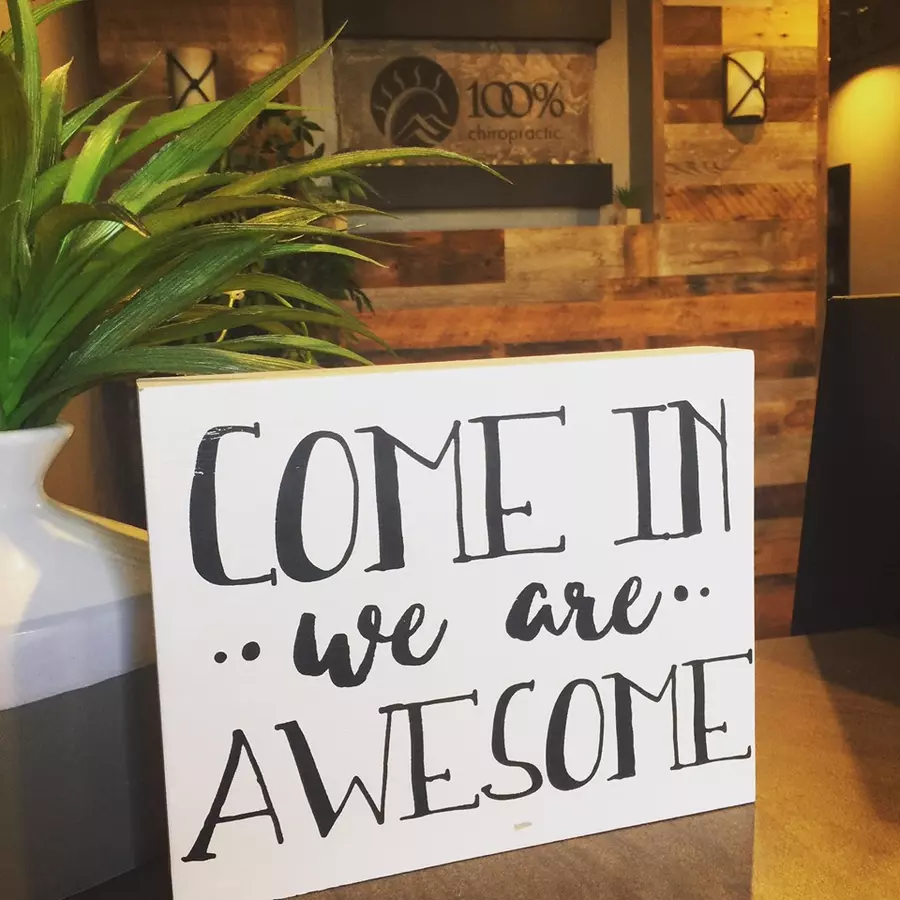 100%
chiropractic
COME IN
..we are..
AWESOME